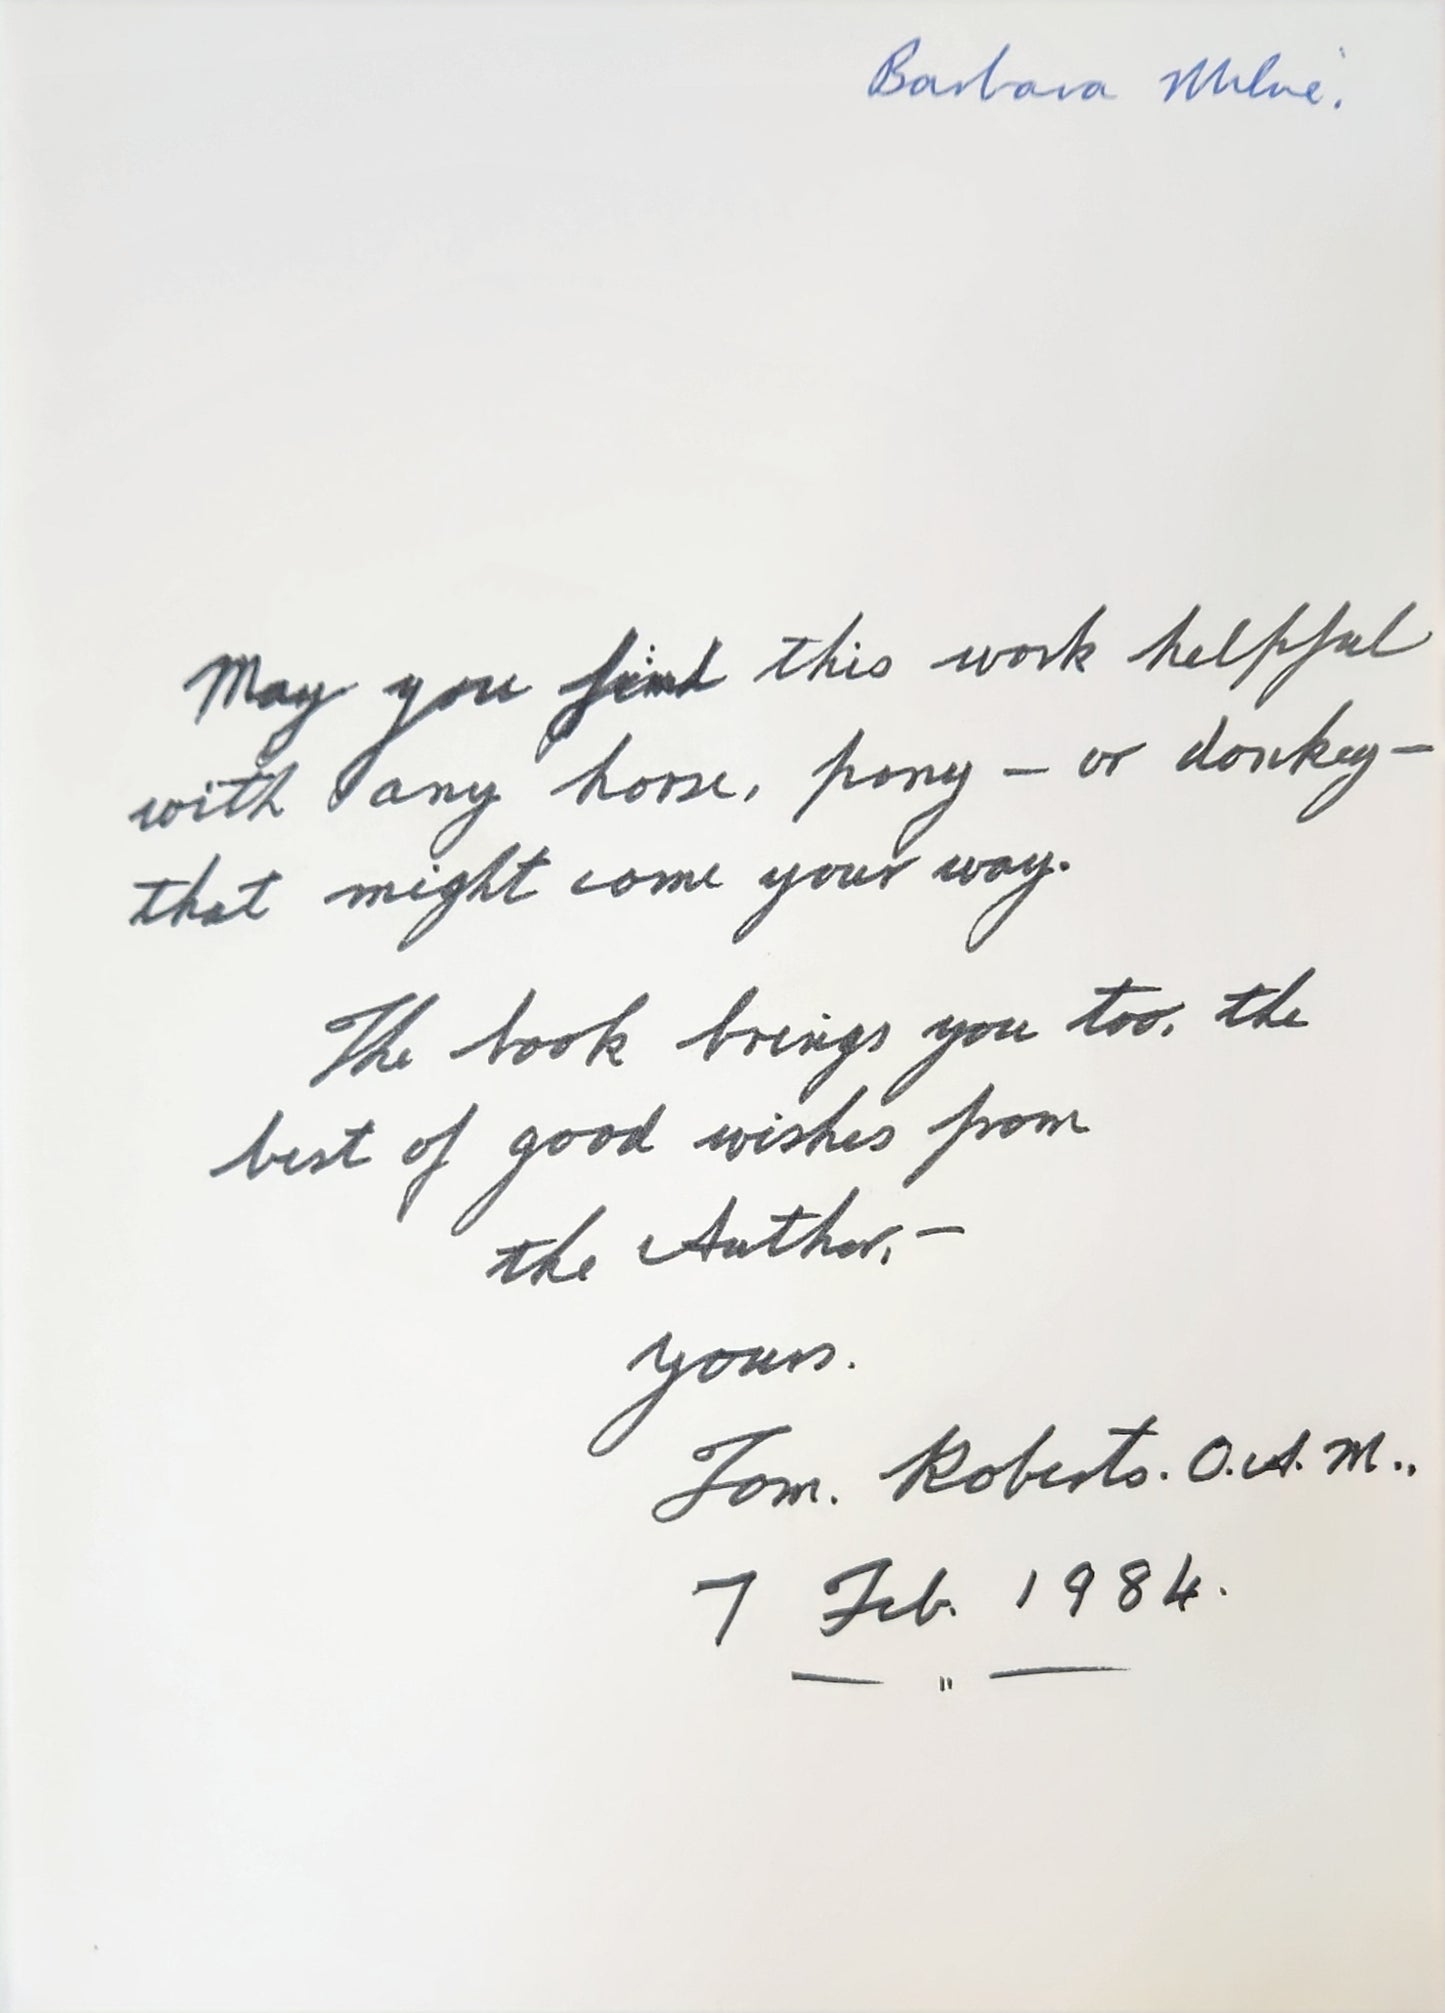 Barbara Milne.
May you find this work helpful
with any horse, pony — or donkey —
that might come your way.
The book brings you too, the
best of good wishes from
the Author, —
yours.
Tom. Roberts. O.A.M..
7 Feb. 1984.
— " —